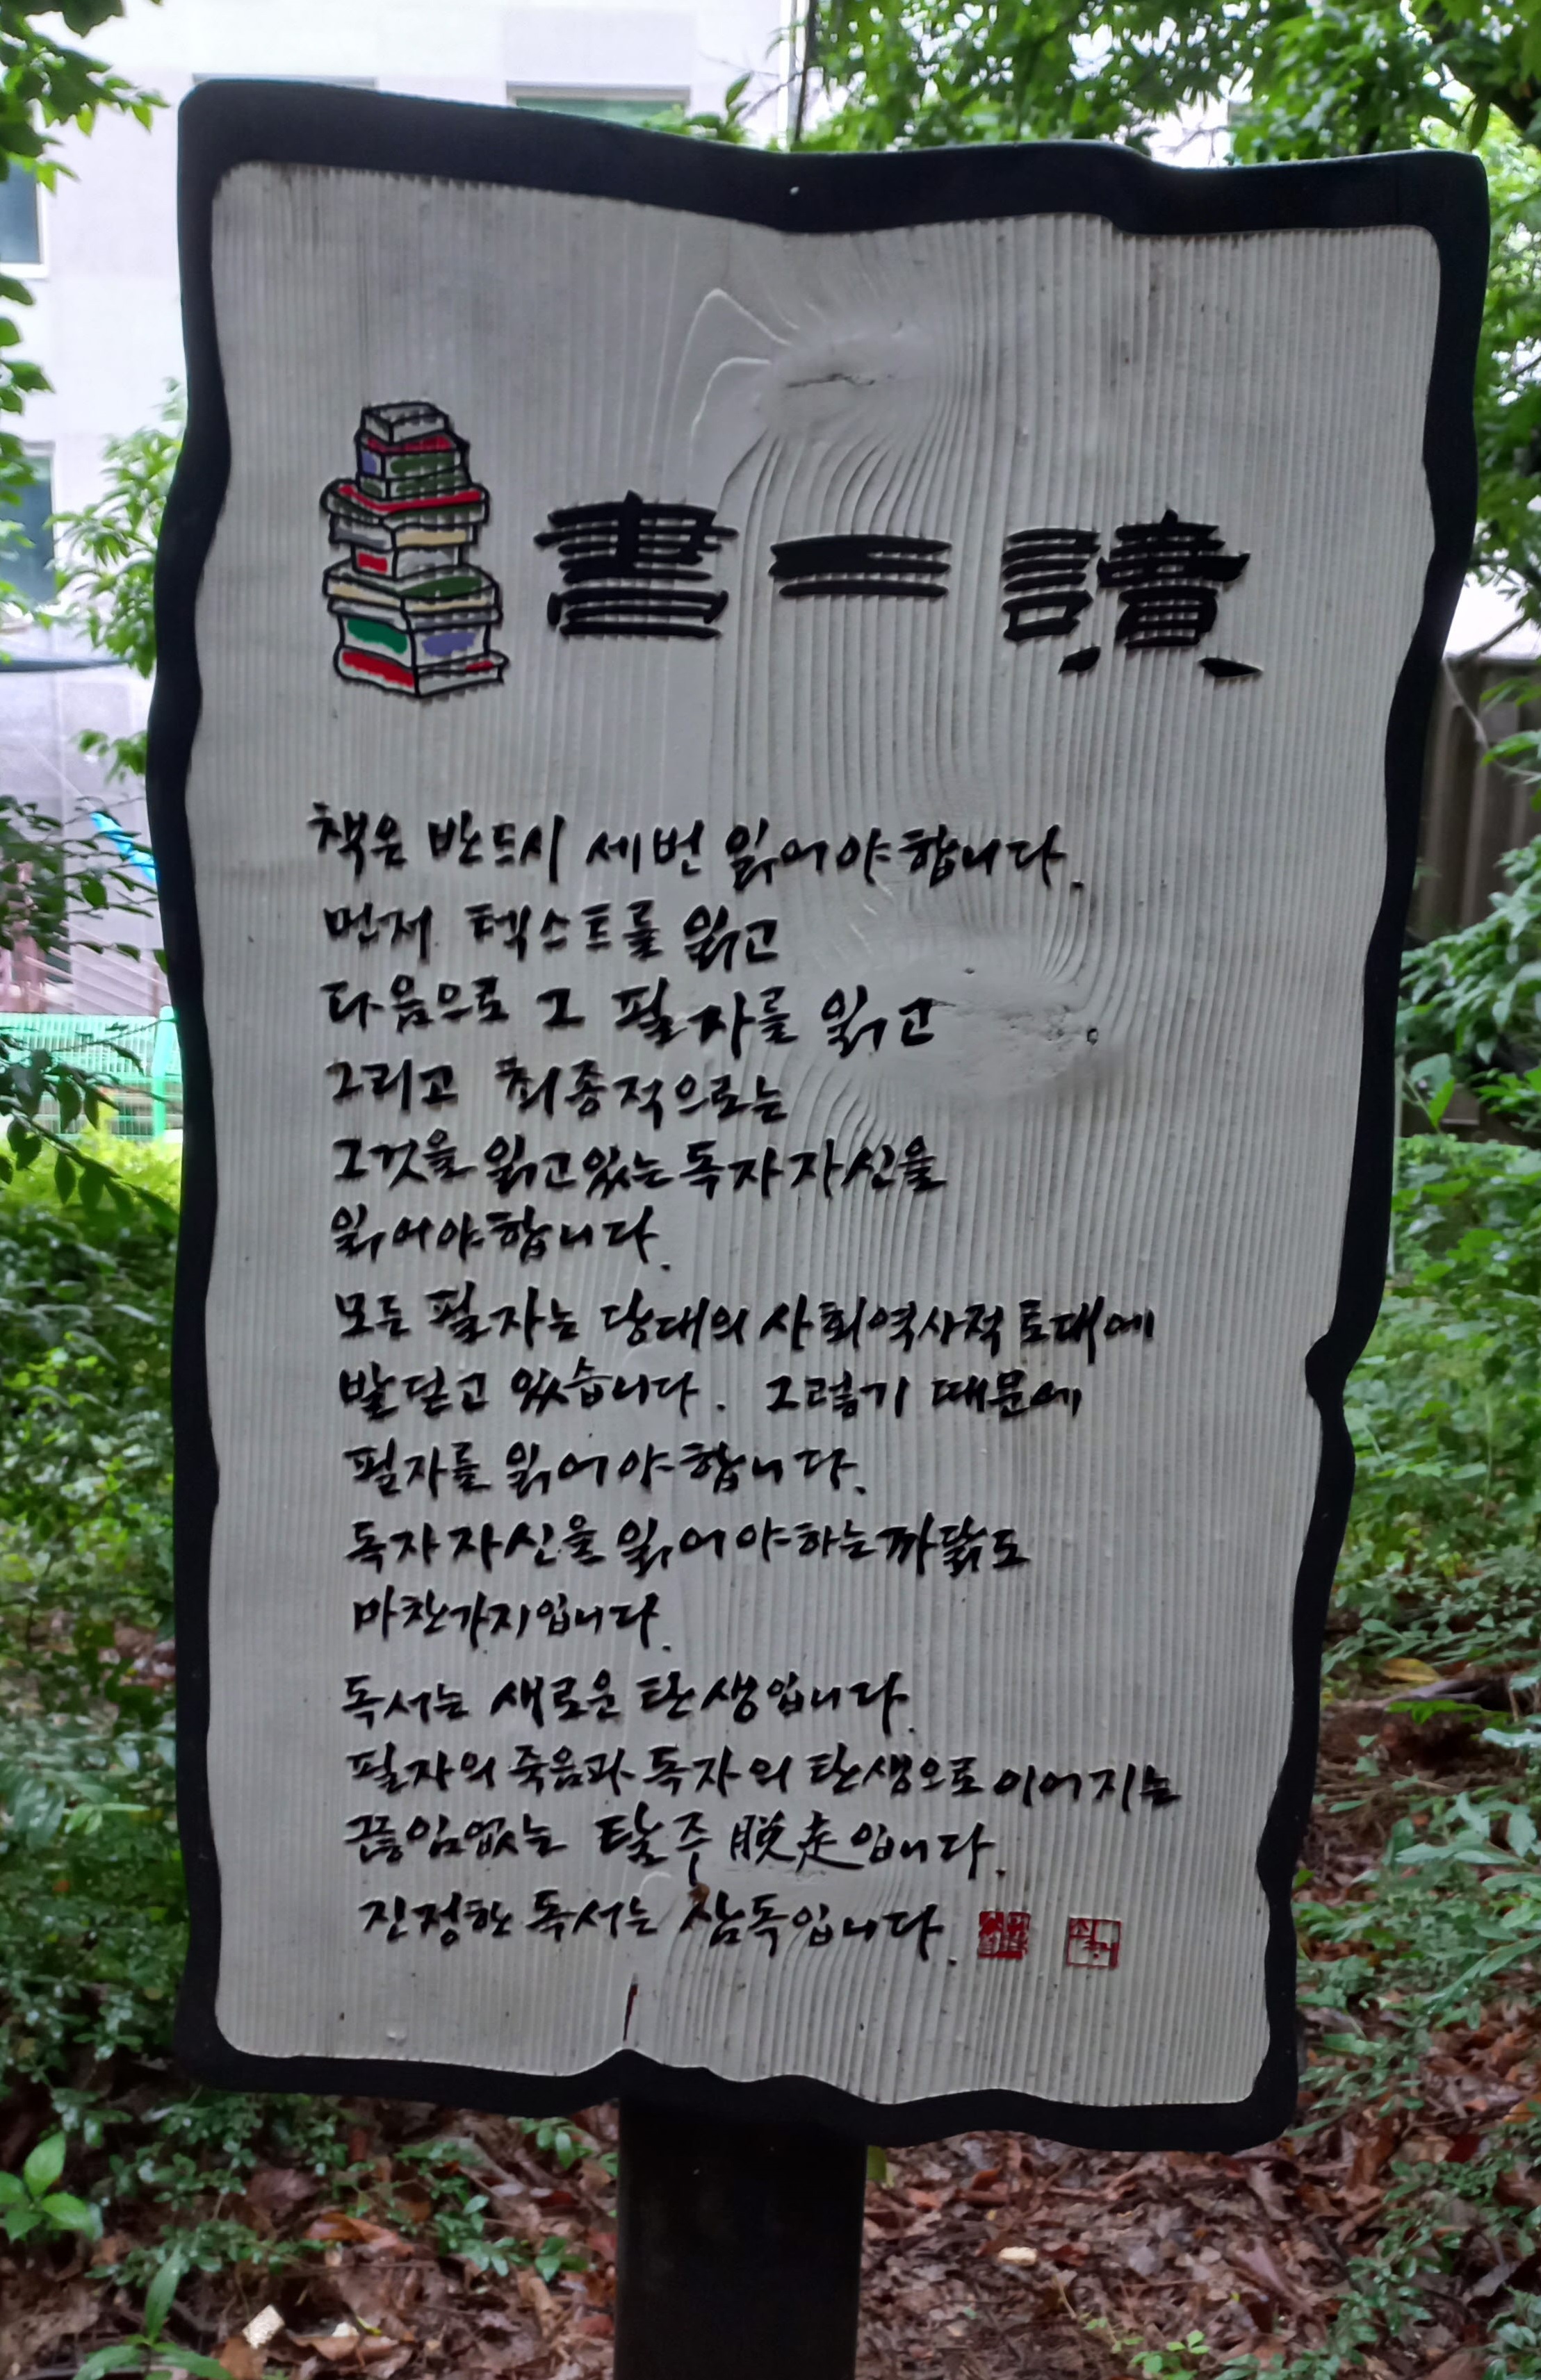 書三讀
책은 반드시 세번 읽어야합니다.
먼저 텍스트를 읽고
다음으로 그 필자를 읽고
그리고 최종적으로는
그것을 읽고있는 독자 자신을
읽어야합니다.
모든 필자는 당대의 사회역사적 토대에
발딛고 있습니다. 그렇기 때문에
필자를 읽어야합니다.
독자 자신을 읽어야하는까닭도
마찬가지입니다.
독서는 새로운 탄생입니다.
필자의 죽음과 독자의 탄생으로 이어지는
끊임없는 탈주 脫走입니다.
진정한 독서는 삼독입니다.